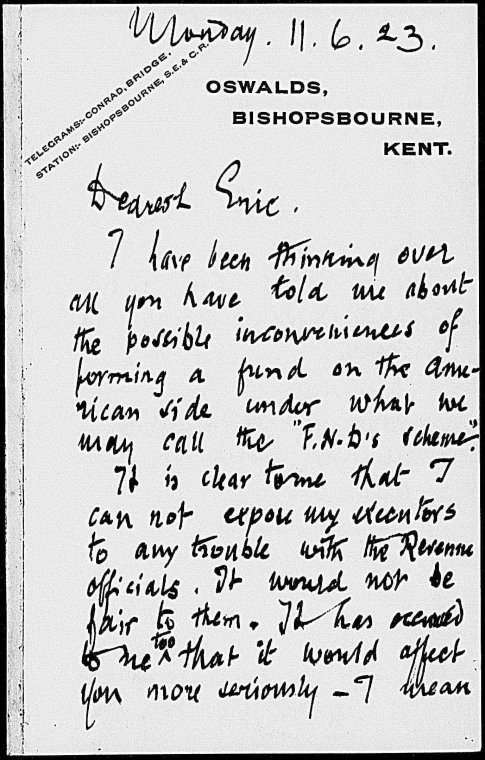 Monday. 11. 6. 23.
TELEGRAMS:- CONRAD, BRIDGE.
STATION:- BISHOPSBOURNE, S.E.& C.R.
OSWALDS,
BISHOPSBOURNE,
KENT.
Dearest Eric.
I have been thinking over
all you have told me about
the possible inconveniences of
forming a fund on the Ame-
rican side under what we
may call the "F.N.D's scheme".
It is clear to me that I
can not expose my executors
to any trouble with the Revenue
officials. It would not be
fair to them. It has occured
to me too that it would affect
you more seriously – I mean